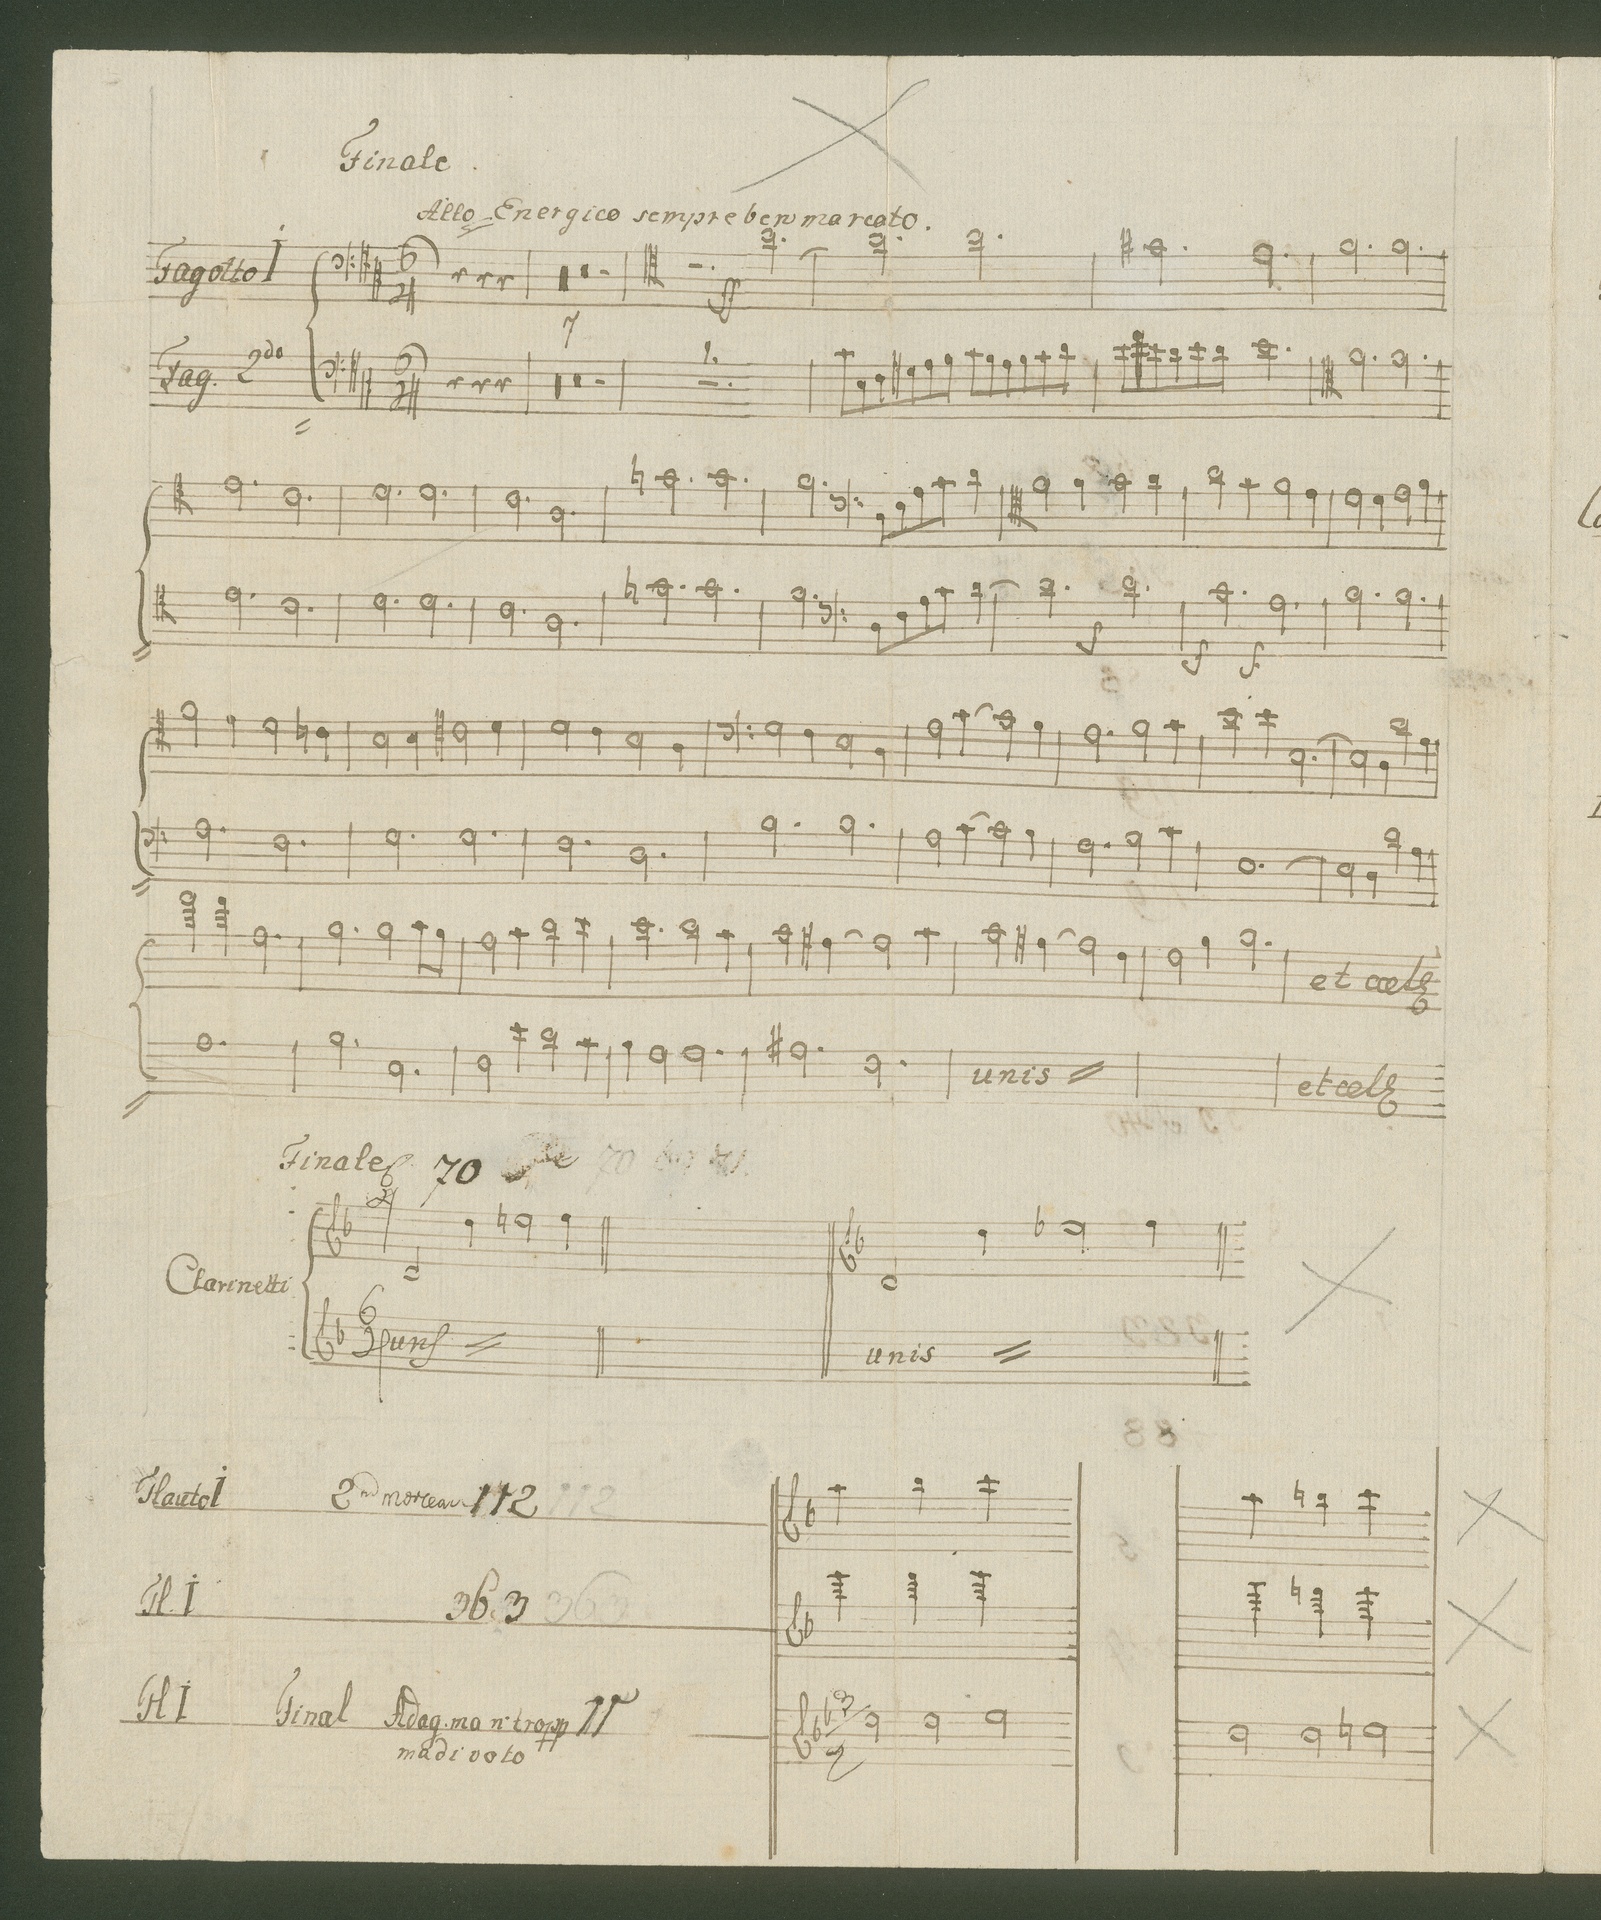 Finale.
Allo Energico sempre ben marcato.
Fagotto I
6
7
Fag. 2do
6
1.
et cœt
unis
et cœt
Finale 70
Clarinetti
6
unis
Flauto I 2nd morceau 112
Fl. I 363
Fl I Final Adag. ma n. tropp 11
ma divoto
3
2